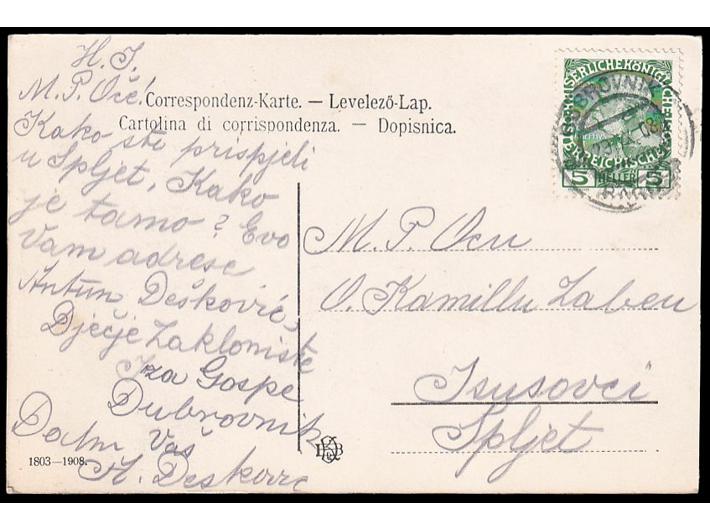 H. I.
M. P. Oče!
Correspondenz-Karte. — Levelező-Lap.
Cartolina di corrispondenza. — Dopisnica.
Kako ste prispjeli
u Spljet, Kako
je tamo? Evo
Vam adrese
Antun Dešković,
Dječje Zaklonište
Iza Gospe
Dubrovnik
Dalm. Vaš
A. Desković
1803—1908.
M. P. Ocu
O. Kamillu Zabeu
Isusovci
Spljet
KAISERLICHE KÖNIGLICHE
ÖSTERREICHISCHE
5 HELLER 5
DUBROVNIK